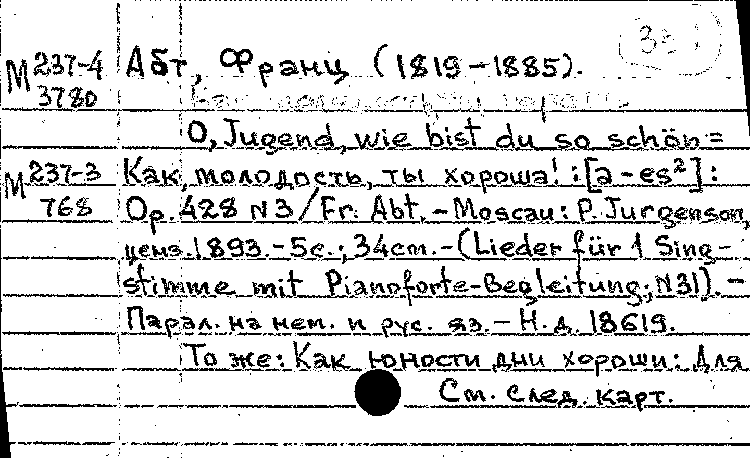 М 237-4 Абт, Франц (1819-1885).
3780
O, Jugend, wie bist du so schön =
М 237-3 Как, молодость, ты хороша! : [a-es²] :
768 Op. 428 N3 / Fr. Abt. - Moscau : P. Jurgenson,
ценз. 1893. - 5с. ; 34cm. - (Lieder für 1 Sing-
stimme mit Pianoforte-Begleitung ; N31). -
Парал. на нем. и рус. яз. - Н. д. 18619.
То же : Как юности дни хороши : Для
См. след. карт.